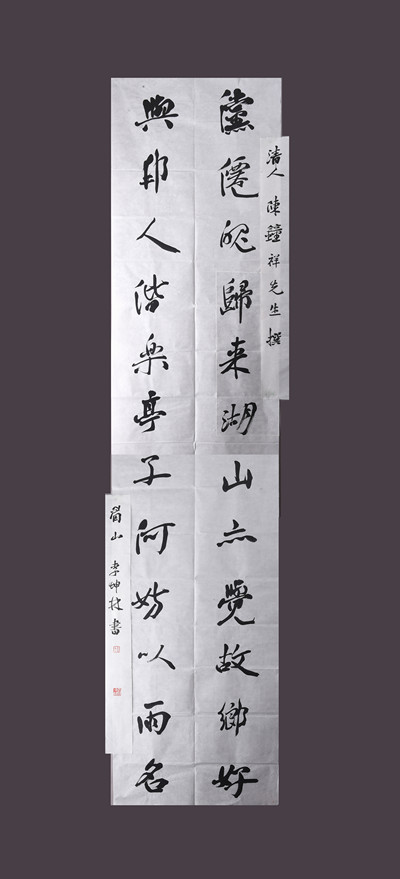 清人 陳鐘祥先生撰
儻僊魄歸来湖山亦覺故鄉好
與邦人偕楽亭子何妨以雨名
眉山 李坤書